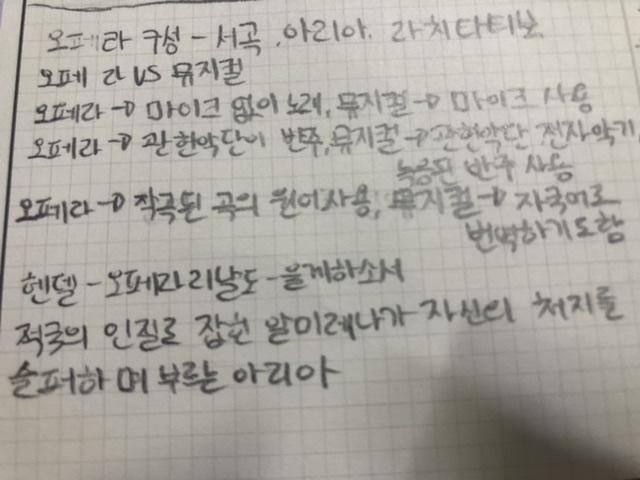 오페라 구성 - 서곡. 아리아. 라치타티브
오페라 VS 뮤지컬
오페라 → 마이크 없이 노래, 뮤지컬 → 마이크 사용
오페라 → 관현악단이 반주, 뮤지컬 → 관현악단, 전자악기,
녹음된 반주 사용
오페라 → 작곡된 곡의 원어사용, 뮤지컬 → 자국어로
번역하기도함
헨델 - 오페라 리날도 - 울게하소서
적국의 인질로 잡힌 알미레나가 자신의 처지를
슬퍼하며 부르는 아리아